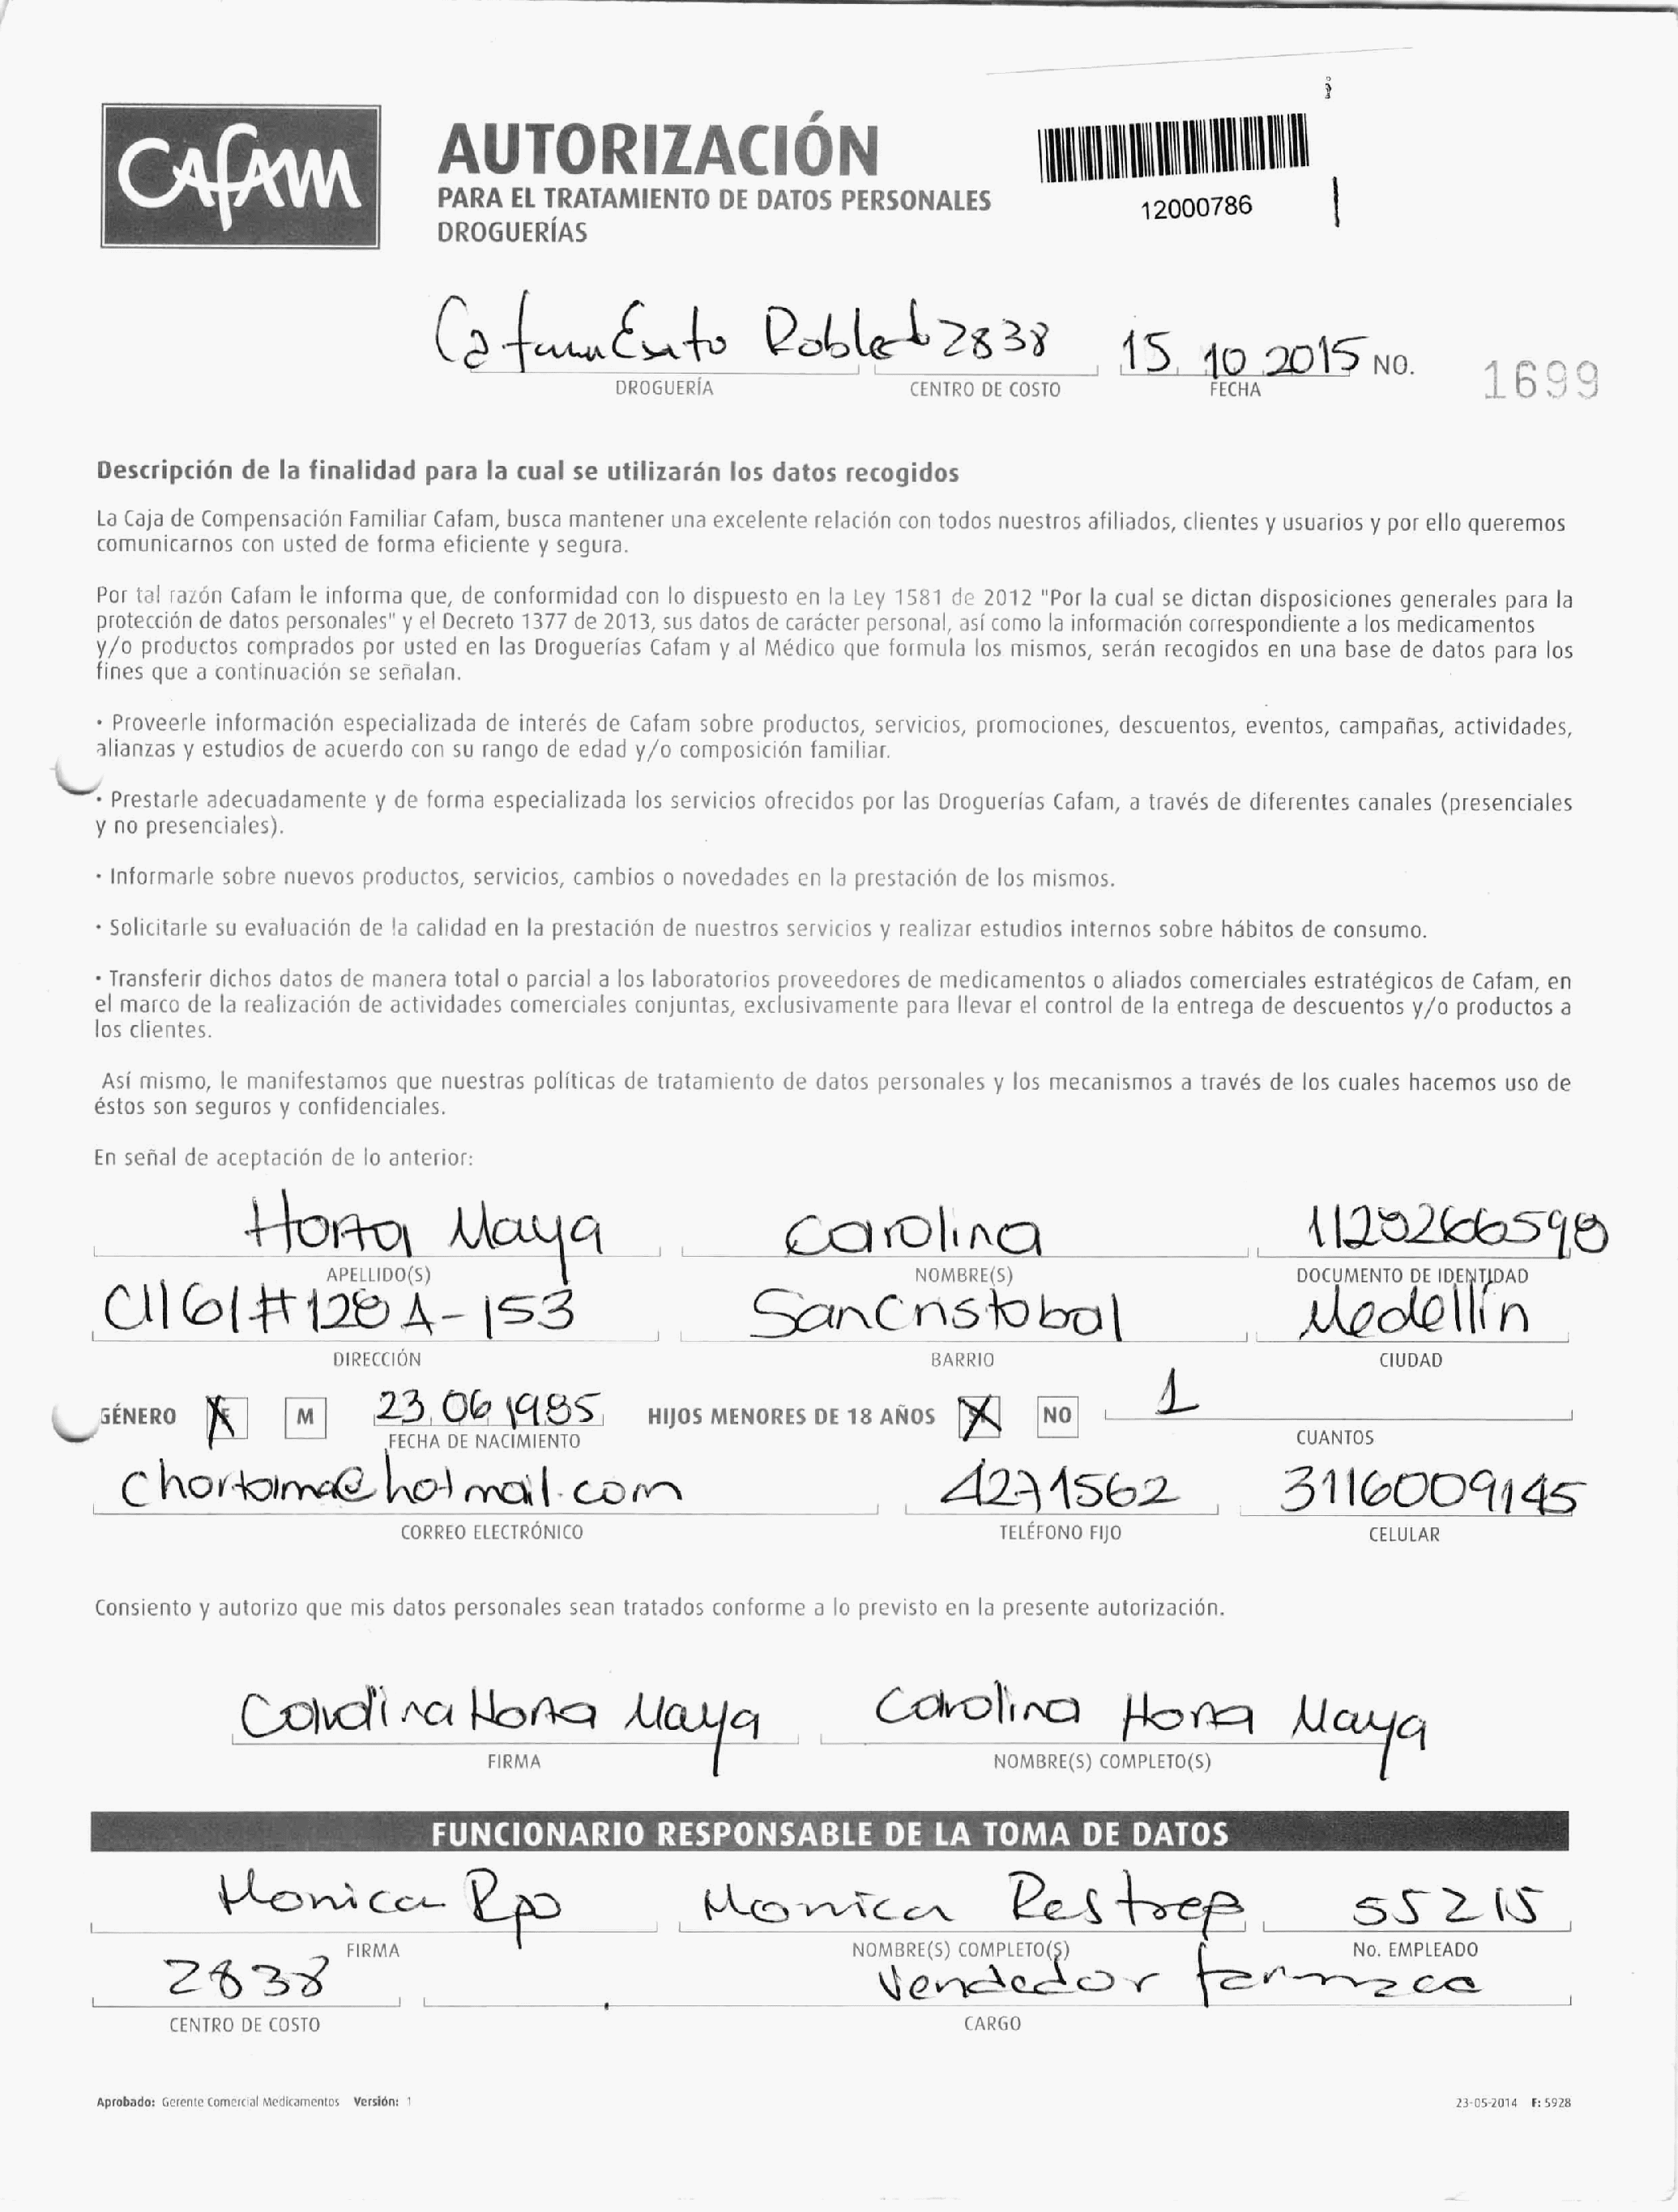 CAFAM
AUTORIZACIÓN
PARA EL TRATAMIENTO DE DATOS PERSONALES
DROGUERÍAS
12000786
Cafam Exito Robledo 2838 15 10 2015 NO. 1699
DROGUERÍA CENTRO DE COSTO FECHA
Descripción de la finalidad para la cual se utilizarán los datos recogidos
La Caja de Compensación Familiar Cafam, busca mantener una excelente relación con todos nuestros afiliados, clientes y usuarios y por ello queremos
comunicarnos con usted de forma eficiente y segura.
Por tal razón Cafam le informa que, de conformidad con lo dispuesto en la Ley 1581 de 2012 "Por la cual se dictan disposiciones generales para la
protección de datos personales" y el Decreto 1377 de 2013, sus datos de carácter personal, así como la información correspondiente a los medicamentos
y/o productos comprados por usted en las Droguerías Cafam y al Médico que formula los mismos, serán recogidos en una base de datos para los
fines que a continuación se señalan.
· Proveerle información especializada de interés de Cafam sobre productos, servicios, promociones, descuentos, eventos, campañas, actividades,
alianzas y estudios de acuerdo con su rango de edad y/o composición familiar.
· Prestarle adecuadamente y de forma especializada los servicios ofrecidos por las Droguerías Cafam, a través de diferentes canales (presenciales
y no presenciales).
· Informarle sobre nuevos productos, servicios, cambios o novedades en la prestación de los mismos.
· Solicitarle su evaluación de la calidad en la prestación de nuestros servicios y realizar estudios internos sobre hábitos de consumo.
· Transferir dichos datos de manera total o parcial a los laboratorios proveedores de medicamentos o aliados comerciales estratégicos de Cafam, en
el marco de la realización de actividades comerciales conjuntas, exclusivamente para llevar el control de la entrega de descuentos y/o productos a
los clientes.
Así mismo, le manifestamos que nuestras políticas de tratamiento de datos personales y los mecanismos a través de los cuales hacemos uso de
éstos son seguros y confidenciales.
En señal de aceptación de lo anterior:
Horta Maya Carolina
APELLIDO(S) NOMBRE(S) DOCUMENTO DE IDENTIDAD
Cll 61 # 128 A - 153 San Cristobal Medellín
DIRECCIÓN BARRIO CIUDAD
GÉNERO F M 23 06 1985 HIJOS MENORES DE 18 AÑOS X NO 1
FECHA DE NACIMIENTO CUANTOS
chortama@hotmail.com 4271562 3116009145
CORREO ELECTRÓNICO TELÉFONO FIJO CELULAR
Consiento y autorizo que mis datos personales sean tratados conforme a lo previsto en la presente autorización.
Carolina Horta Maya Carolina Horta Maya
FIRMA NOMBRE(S) COMPLETO(S)
FUNCIONARIO RESPONSABLE DE LA TOMA DE DATOS
Monica Rpo Monica Restrep 55215
FIRMA NOMBRE(S) COMPLETO(S) No. EMPLEADO
2838 Vendedor farmacia
CENTRO DE COSTO CARGO
Aprobado: Gerente Comercial Medicamentos Versión: 1 23-05-2014 F: 5928